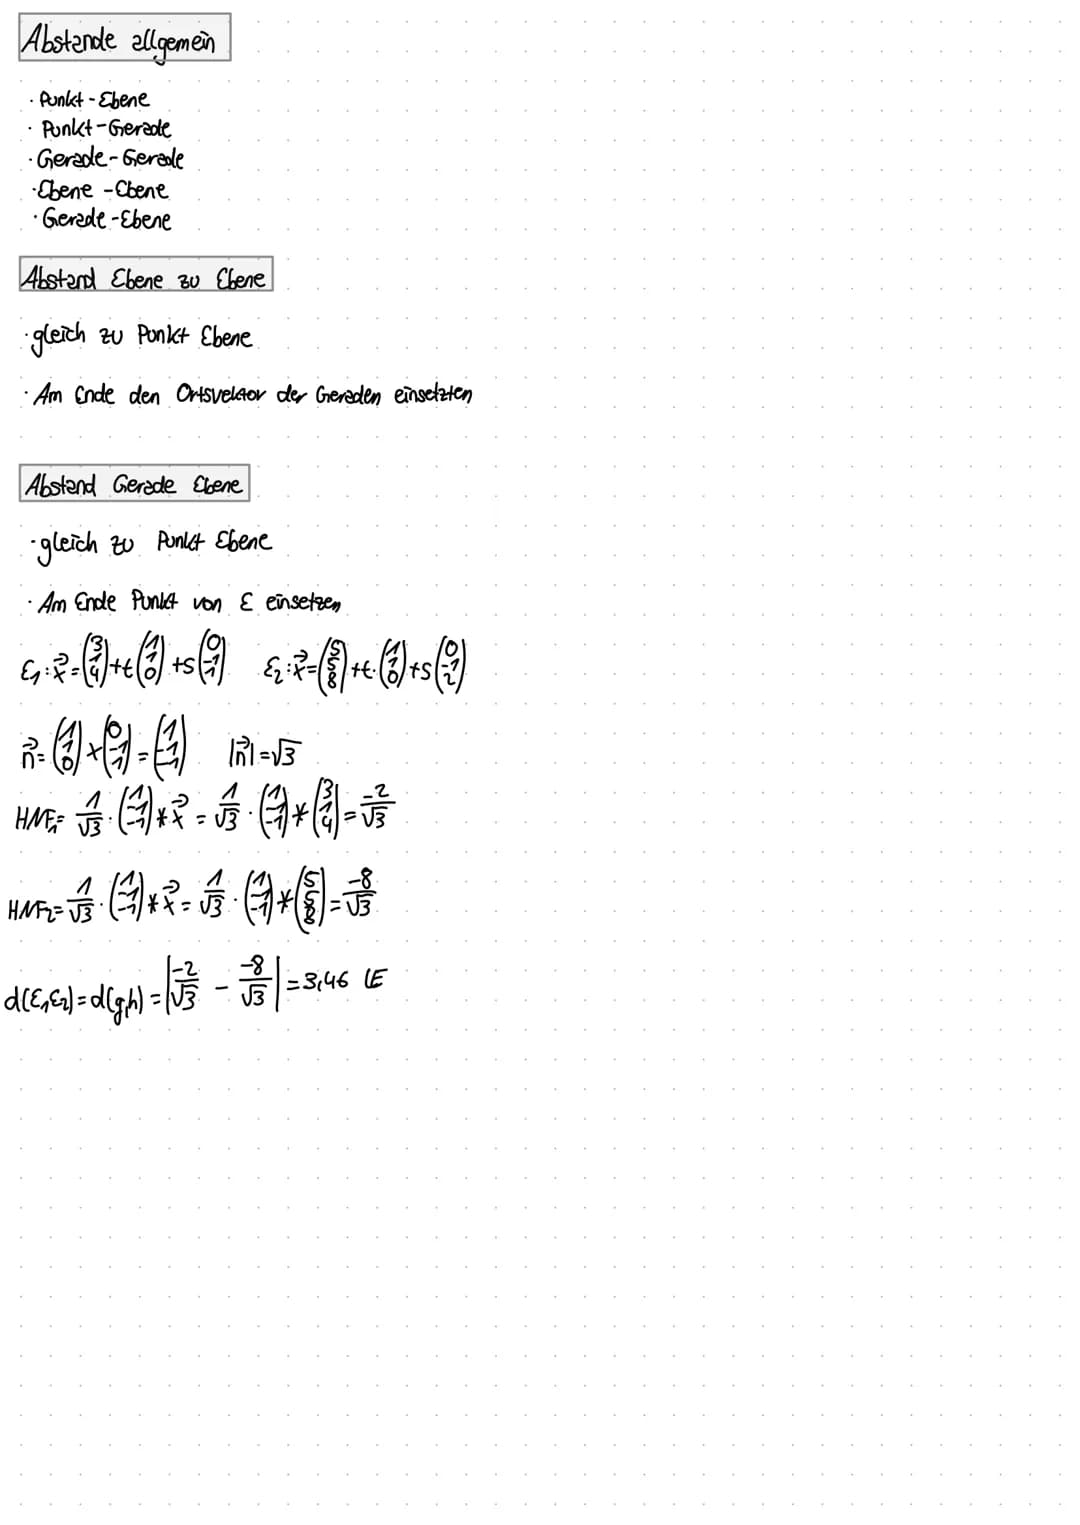 Abstände allgemein
· Punkt-Ebene
· Punkt-Gerade
· Gerade-Gerade
· Ebene-Ebene
· Gerade-Ebene
Abstand Ebene zu Ebene
· gleich zu Punkt Ebene
· Am Ende den Ortsvektor der Geraden einsetzten
Abstand Gerade Ebene
· gleich zu Punkt Ebene
· Am Ende Punkt von E einsetzen
E₁: x⃗ = (3 1 4) + t (1 1 0) + s (0 -1 1) E₂: x⃗ = (5 5 8) + t · (1 1 0) + s (0 -1 2)
n⃗ = (1 1 0) × (0 -1 1) = (1 -1 -1) |n⃗| = √3
HNF₁ = 1/√3 · (1 -1 -1) * x⃗ = 1/√3 · (1 -1 -1) * (3 1 4) = -2/√3
HNF₂ = 1/√3 · (1 -1 -1) * x⃗ = 1/√3 · (1 -1 -1) * (5 5 8) = -8/√3
d(E₁,E₂) = d(g,h) = |-2/√3 - -8/√3| = 3,46 LE